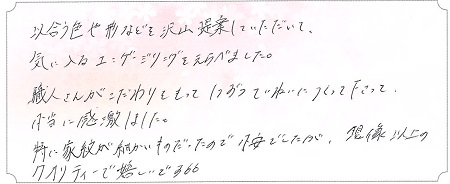 似合う色や形などを沢山提案していただいて、
気に入るエンゲージリングをえらべました。
職人さんがこだわりをもって1つ1つていねいにつくって下さって、
本当に感激しました。
特に家紋が細かいものだったので不安でしたが、想像以上の
クオリティーで嬉しいです。